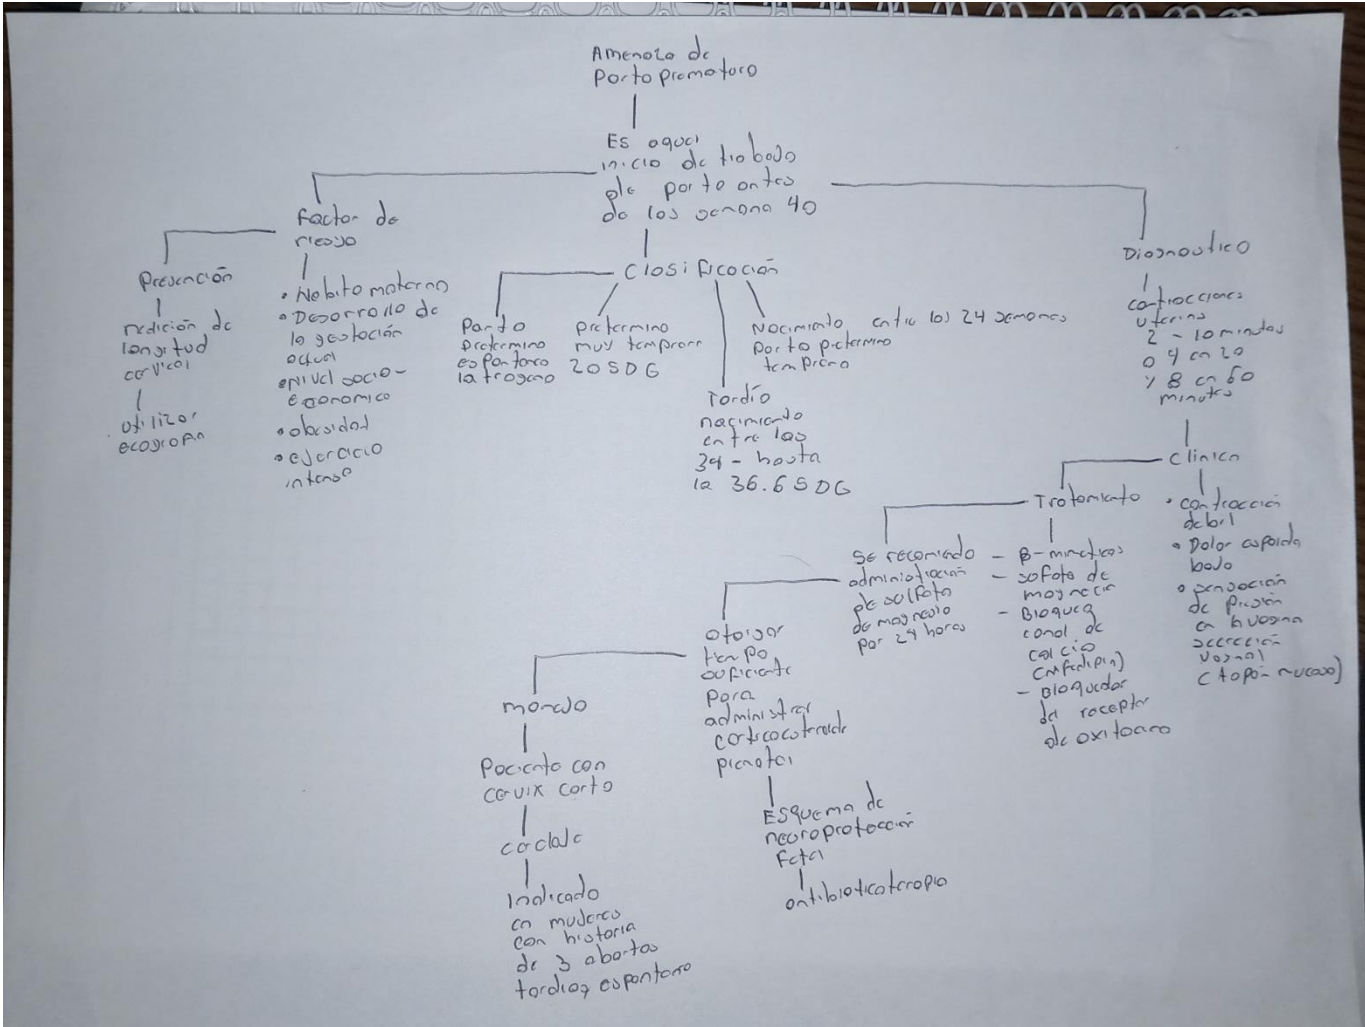 Amenaza de
Parto prematuro
Es aquel
inicio de trabajo
de parto antes
de las semana 40
Factor de
riesgo
Prevención
medición de
longitud
cervical
utilizar
ecografia
• Habito materno
• Desarrollo de
la gestación
actual
• nivel socio-
economico
• obesidad
• ejercicio
intenso
Clasificación
Parto
pretermino
espontaneo
pretermino
muy temprano
20 SDG
Tardío
nacimiento
entre las
34 - hasta
la 36.6 SDG
Nacimiento entre las 24 semanas
parto pretermino
temprano
Diagnostico
contracciones
uterina
2 - 10 minutos
o 4 en 20
y 8 en 60
minutos
Clinica
• contracción
debil
• Dolor espalda
bajo
• sensación
de presión
en
secreción
vaginal
(tapón mucoso)
Tratamiento
- B-mimeticos
- sofato de
magnecio
- Bloquea
canal de
calcio
- Bloqueador
del receptor
de
Se recomienda
administración
de sulfato
de magnesio
por 24 horas
otorgar
tiempo
suficiente
para
administrar
prenatal
Esquema de
neuroprotección
Fetal
antibioticoterapia
manejo
Paciente con
cervix corto
Indicado
en mujeres
con historia
de 3 abortos
tardios espontaneo